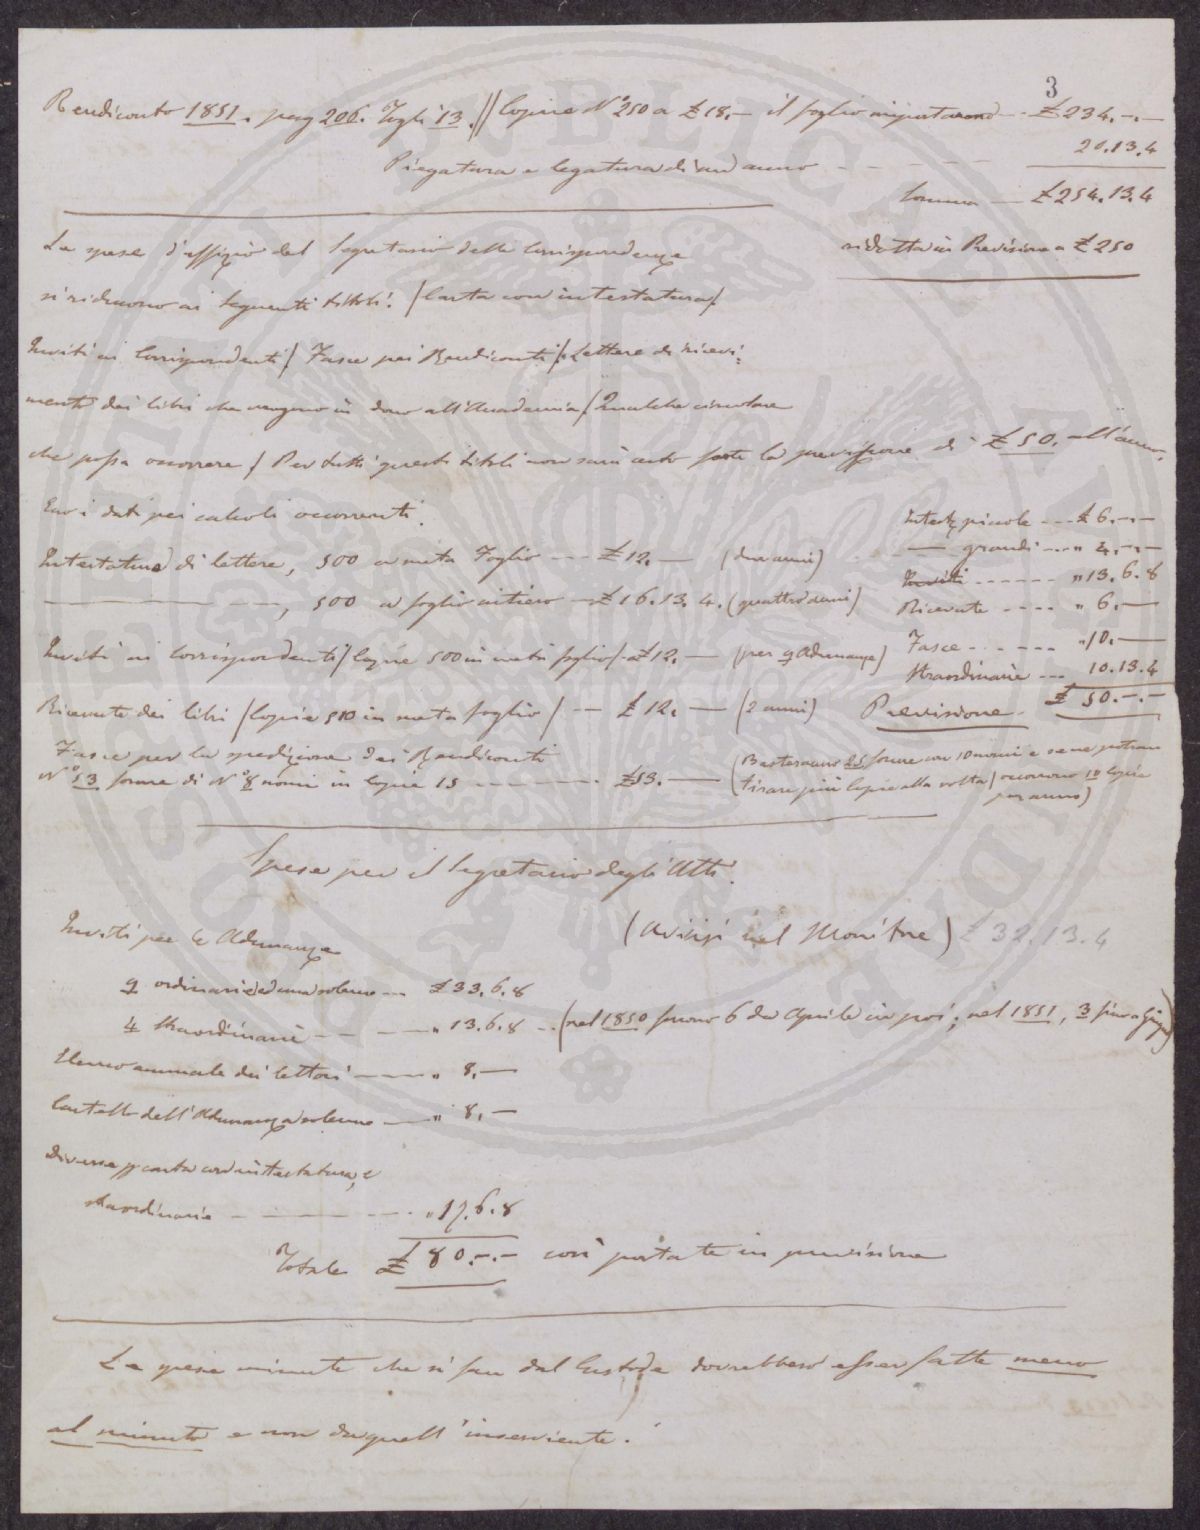 3
Rendiconto 1851. pag 206. Fogli 13. // Copie N.° 250 a £ 18.— il foglio importarono — £ 234.-.—
Piegatura e legatura di un anno — 20.13.4
Somma — £ 254.13.4
ridotta in Previsione a £ 250
Le spese d'uffizio del Segretario delle Corrispondenze
si riducono ai seguenti titoli: / Carta con intestatura /
Inviti ai Corrispondenti / Fasce pei Rendiconti / Lettere di ricevi:
mento dei libri che vengono in dono all'Accademia / Qualche circolare
che possa occorrere / Per tutti questi titoli non sarà forte la previsione di £ 50. all'anno.
Ecco i dati pei calcoli occorrenti.
Intestature di lettere, 500 a metà Foglio --- £ 12.— (due anni)
——— —, 500 a foglio intiero — £ 16.13.4. (quattro anni)
Inviti ai Corrispondenti / Copie 500 in metà foglio / — £ 12.— (per 9 Adunanze)
Ricevute dei libri / Copie 500 in metà foglio / — £ 12.— (2 anni)
Fasce per la spedizione dei Rendiconti
N.° 53 forme di N.° 8 nomi in copie 15 — £ 53.—
(Basteranno 25 forme con 10 nomi e se ne potran
tirare più copie alla volta) occorrono 10 copie
per anno)
Intest. piccole --- £ 6.-.—
— grandi --- " 4.-.—
Inviti ------ " 13.6.8
Ricevute ---- " 6.—
Fasce ------ " 10.—
Straordinarie --- 10.13.4
Previsione £ 50.-.-
Spese per il Segretario degli Atti.
Inviti per le Adunanze
(Avvisi nel Monitore) £ 32.13.4
9 ordinarie ed una solenne --- £ 33.6.8
4 straordinarie — — " 13.6.8 -- (nel 1850 furono 6 da Aprile in poi; nel 1851, 3 fino a Giugno)
Elenco annuale dei lettori ——— " 8.—
Cartello dell'Adunanza solenne ——— " 8.—
Diverse p carta con intestatura, e
straordinarie — — — — " 17.6.8
Totale £ 80.-.- così portate in previsione
Le spese minute che si fan dal Custode dovrebbero esser fatte meno
al minuto e non da quell'inserviente.